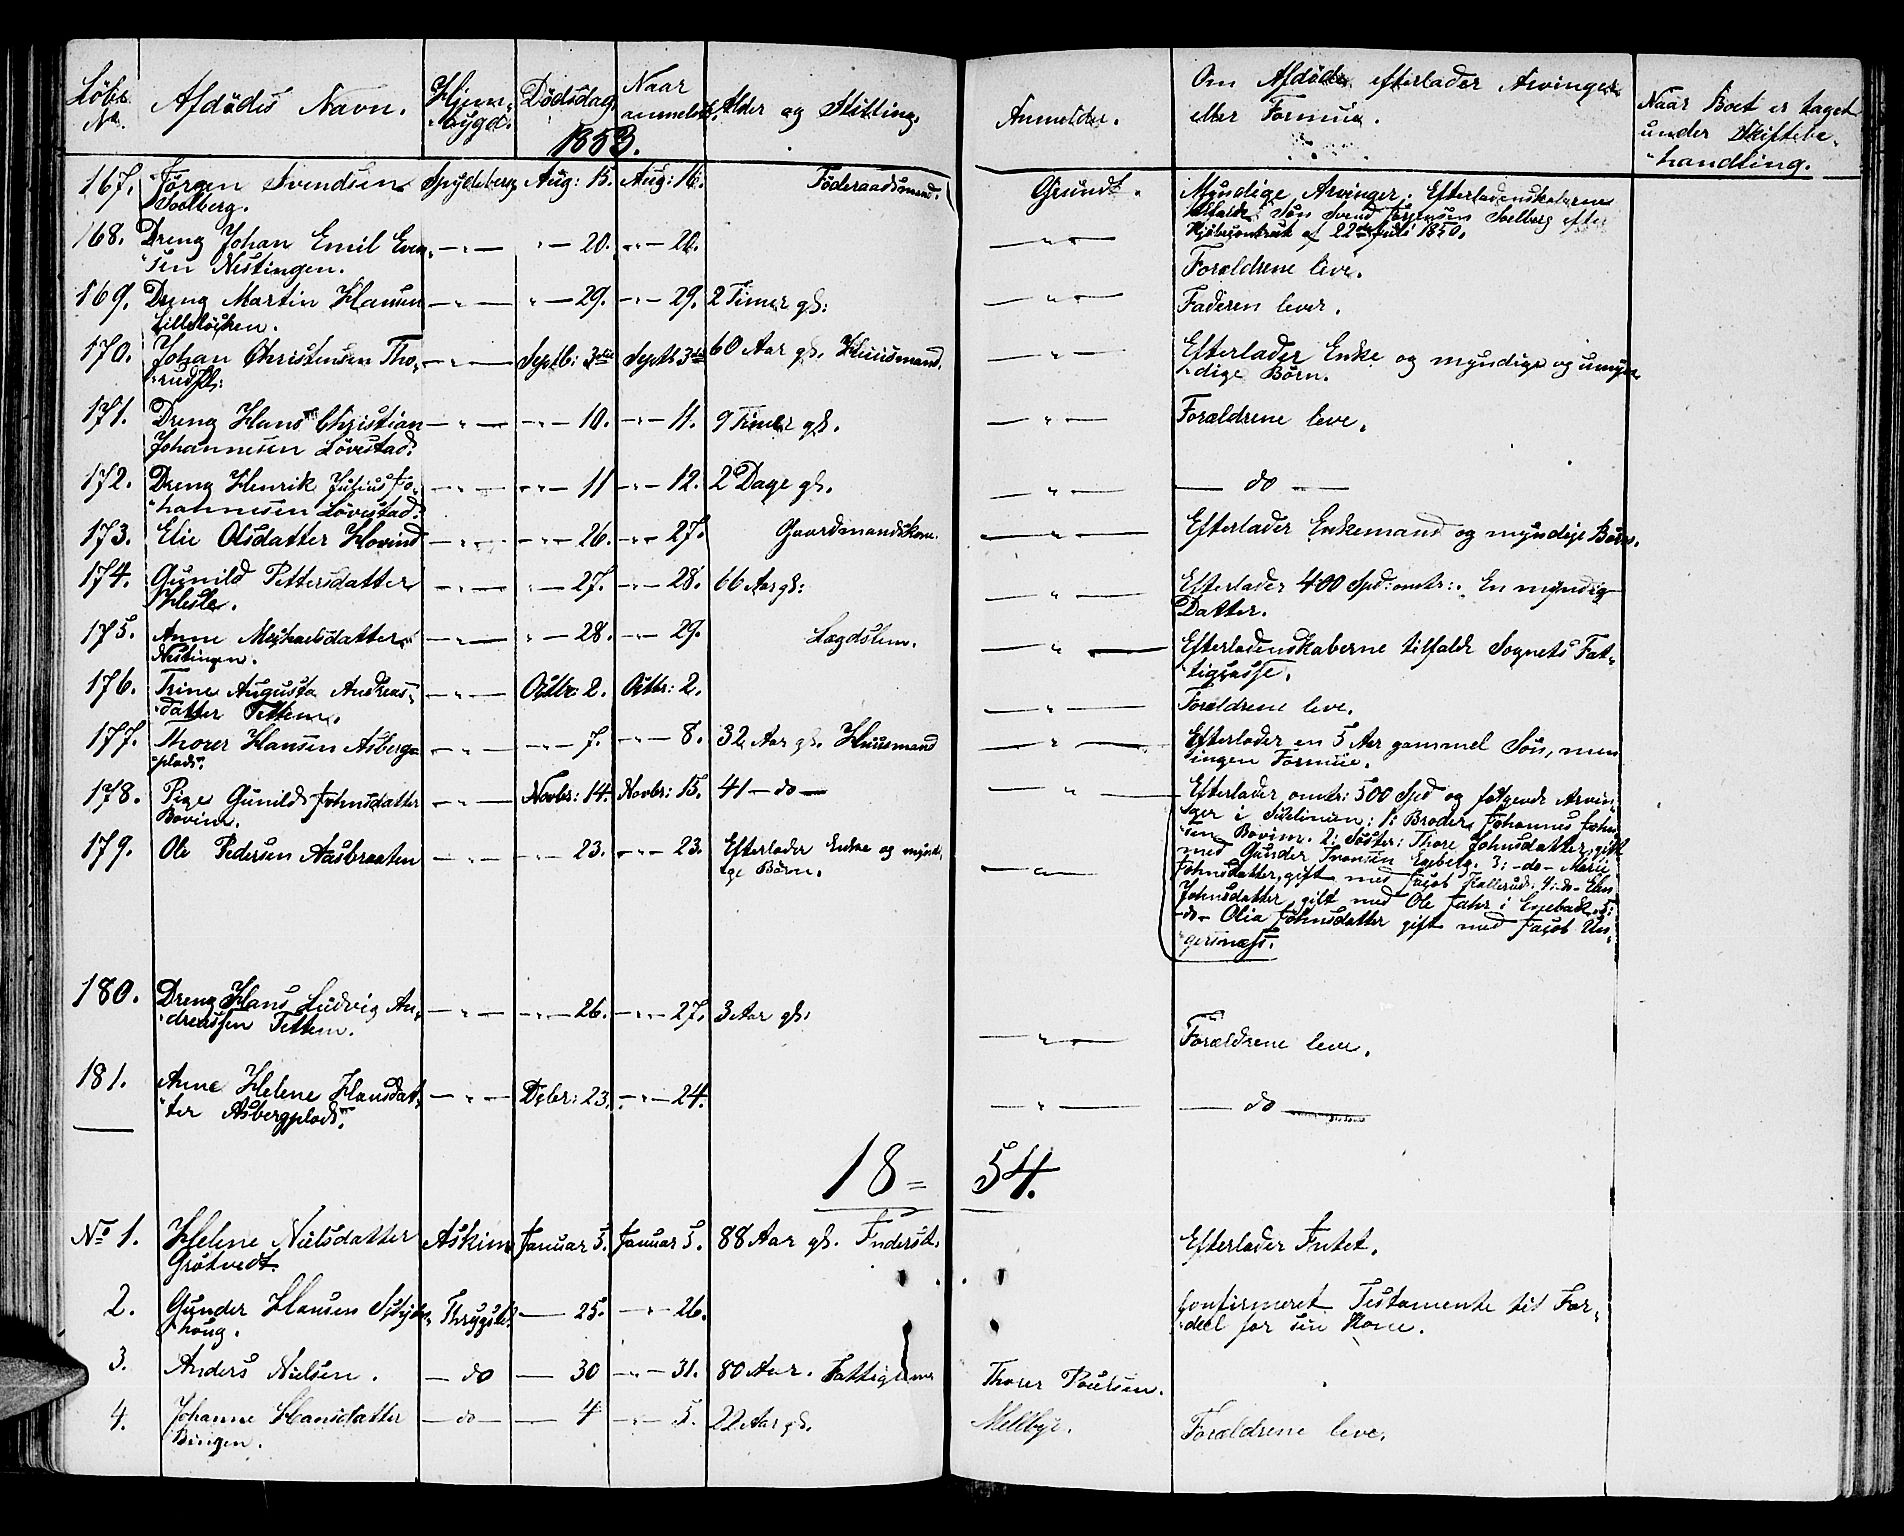 Løbe No. Afdødes Navn. Hjem-bygd. Dødsdag Naar anmeldt. Alder og Stilling. Anmelder. Om Afdøde efterlader Arvinger eller Formue. Naar Boet er taget under Skiftebe-handling.
1853.
167. Jørgen Svendsen Spydeberg Aug: 15. Aug: 16. Føderaadsmand. Grundt. Myndige Arvinger. Efterladenskaberne
Solberg. tilfalde Søn Svend Jørgensen Solberg efter
Kjøbecontract af 22de Juli 1850.
168. Dreng Johan Emil Even- —"— " 20. "– 20. —"—
sen Nestingen. Forældrene leve.
169. Dreng Martin Hansen —"— " — 29. —"— 29. 2 Timer gl: —"— Faderen lever.
Lilleløkken.
170. Johan Christensen Tho- —"— Septb: 3die Septb 3die 60 Aar gl. Huusmand. —"— Efterlader Enke og myndige og umyn-
rudpl: dige Børn.
171. Dreng Hans Christian —"— —"— 10. —"— 11. 9 Timer gl. —"— Forældrene leve.
Johannesen Løvestad.
172. Dreng Henrik Julius Jo- —"— —"— 11 —"— 12. 2 Dage gl. —"— — do —
hannesen Løvestad.
173. Elie Olsdatter Hovind —"— —"— 26. —"— 27. Gaardmandskone. —"— Efterlader Enkemand og myndige Børn.
174. Gunild Pettersdatter —"— —"— 27. —"— 28. 66 Aar gl: —"— Efterlader 400 Spd: omtr:. En myndig
Hesle. Datter.
175. Anne Michaelsdatter —"— " — 28. —"— 29. Lægdslem. —"— Efterladenskaberne tilfalde Sognets Fat-
Nestingen. tigcasse.
176. Trine Augusta Andreas- —"— Octbr: 2. Octbr: 2. —"— Forældrene leve.
datter Tettem.
177. Thorer Hansen Asberg- —"— —"— 7. —"— 8. 32 Aar gl. Huusmand —"— Efterlader en 5 Aar gammel Søn, men
plads. ingen Formue.
178. Pige Gunild Johnsdatter —"— Novbr: 14. Novbr: 15. 41 — do — —"— Efterlader omtr: 500 Spd og følgende Arvin-
Bovim. ger i Sidelinien: 1: Broder Johannes John-
sen Bovim. 2: Søster: Thore Johnsdatter, gift
179. Ole Pedersen Aasbraaten —"— —"— 23. —"— 23. Efterlader Enke og mynd- —"— med Gunder Engeberg. 3: -do- Marie
ige Børn. Johnsdatter, gift med Jacob Kallerud. 4: -do-
Johnsdatter gift med Ole Fahr i Enebak. 5:
-do- Olia Johnsdatter gift med Jacob Un-
gersnæss.
180. Dreng Hans Ludvig An- —"— —"— 26. —"— 27. 3 Aar gl. —"— Forældrene leve.
dreassen Tettem.
181. Anne Helene Hansdat- —"— Dcbr: 23. —"— 24. —"— — do —
ter Asbergplads.
18=54.
No 1. Helene Nielsdatter Askim Januar 5. Januar 5. 88 Aar gl. Indersit. Efterlader Intet.
Grøtvedt.
2. Gunder Hansen Thrygstd. — 25. —"— 26. Confirmeret Testamente til For-
houg. deel for sin Kone.
3. Anders Nielsen. — do — 30 —"— 31. 80 Aar. Fattiglem Thorer Poulsen.
4. Johanne Hansdatter — do — — 4 —"— 5. 22 Aar gl. Mellbye. Forældrene leve.
Bingen.